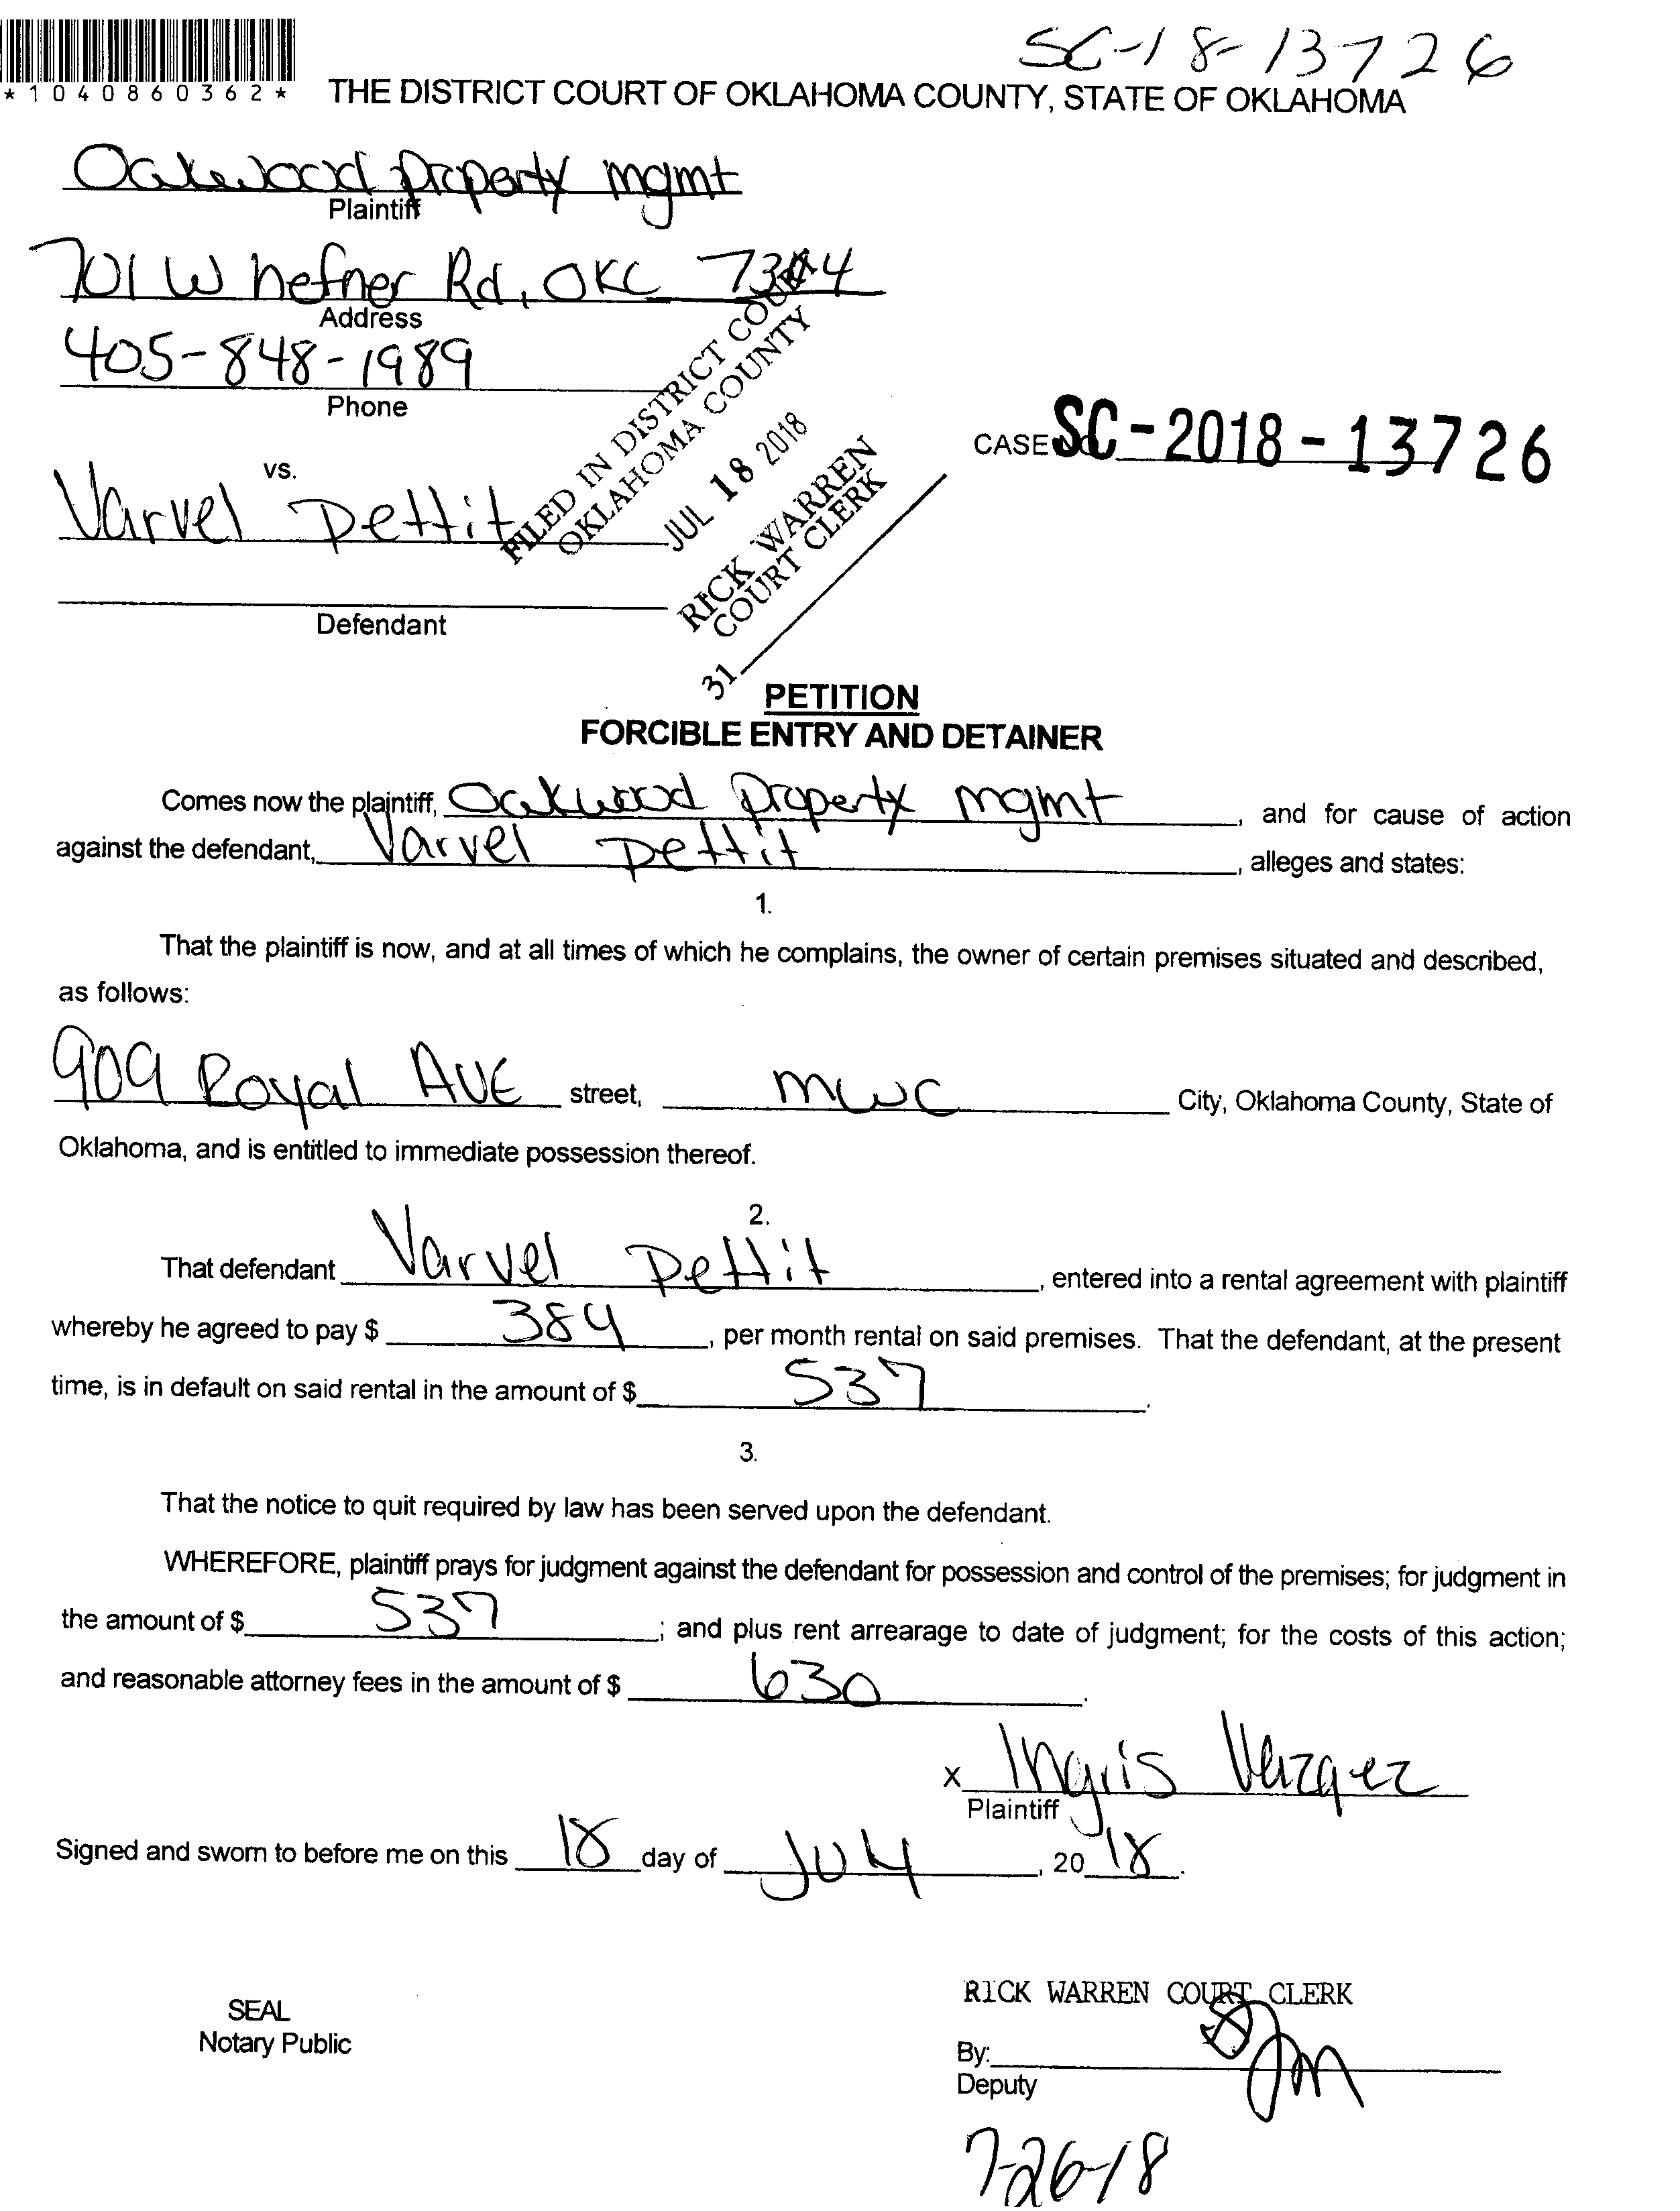 SC-18-13726
*1040860362*
THE DISTRICT COURT OF OKLAHOMA COUNTY, STATE OF OKLAHOMA
Oakwood property mgmt
Plaintiff
701 W hefner Rd, OKC
Address
405-848-1989
Phone
FILED IN DISTRICT COURT
OKLAHOMA COUNTY
JUL 18 2018
RICK WARREN
COURT CLERK
31
CASE SC-2018-13726
vs.
Varvel Pettit
Defendant
PETITION
FORCIBLE ENTRY AND DETAINER
Comes now the plaintiff, Oakwood property mgmt, and for cause of action
against the defendant, Varvel Pettit, alleges and states:
1.
That the plaintiff is now, and at all times of which he complains, the owner of certain premises situated and described,
as follows:
909 Royal Ave street, mwc City, Oklahoma County, State of
Oklahoma, and is entitled to immediate possession thereof.
2.
That defendant Varvel Pettit, entered into a rental agreement with plaintiff
whereby he agreed to pay $ 384, per month rental on said premises. That the defendant, at the present
time, is in default on said rental in the amount of $ 537.
3.
That the notice to quit required by law has been served upon the defendant.
WHEREFORE, plaintiff prays for judgment against the defendant for possession and control of the premises; for judgment in
the amount of $ 537; and plus rent arrearage to date of judgment; for the costs of this action;
and reasonable attorney fees in the amount of $ 630.
x Ingris Vazquez
Plaintiff
Signed and sworn to before me on this 18 day of July, 2018.
SEAL
Notary Public
RICK WARREN COURT CLERK
By:
Deputy
7-26-18